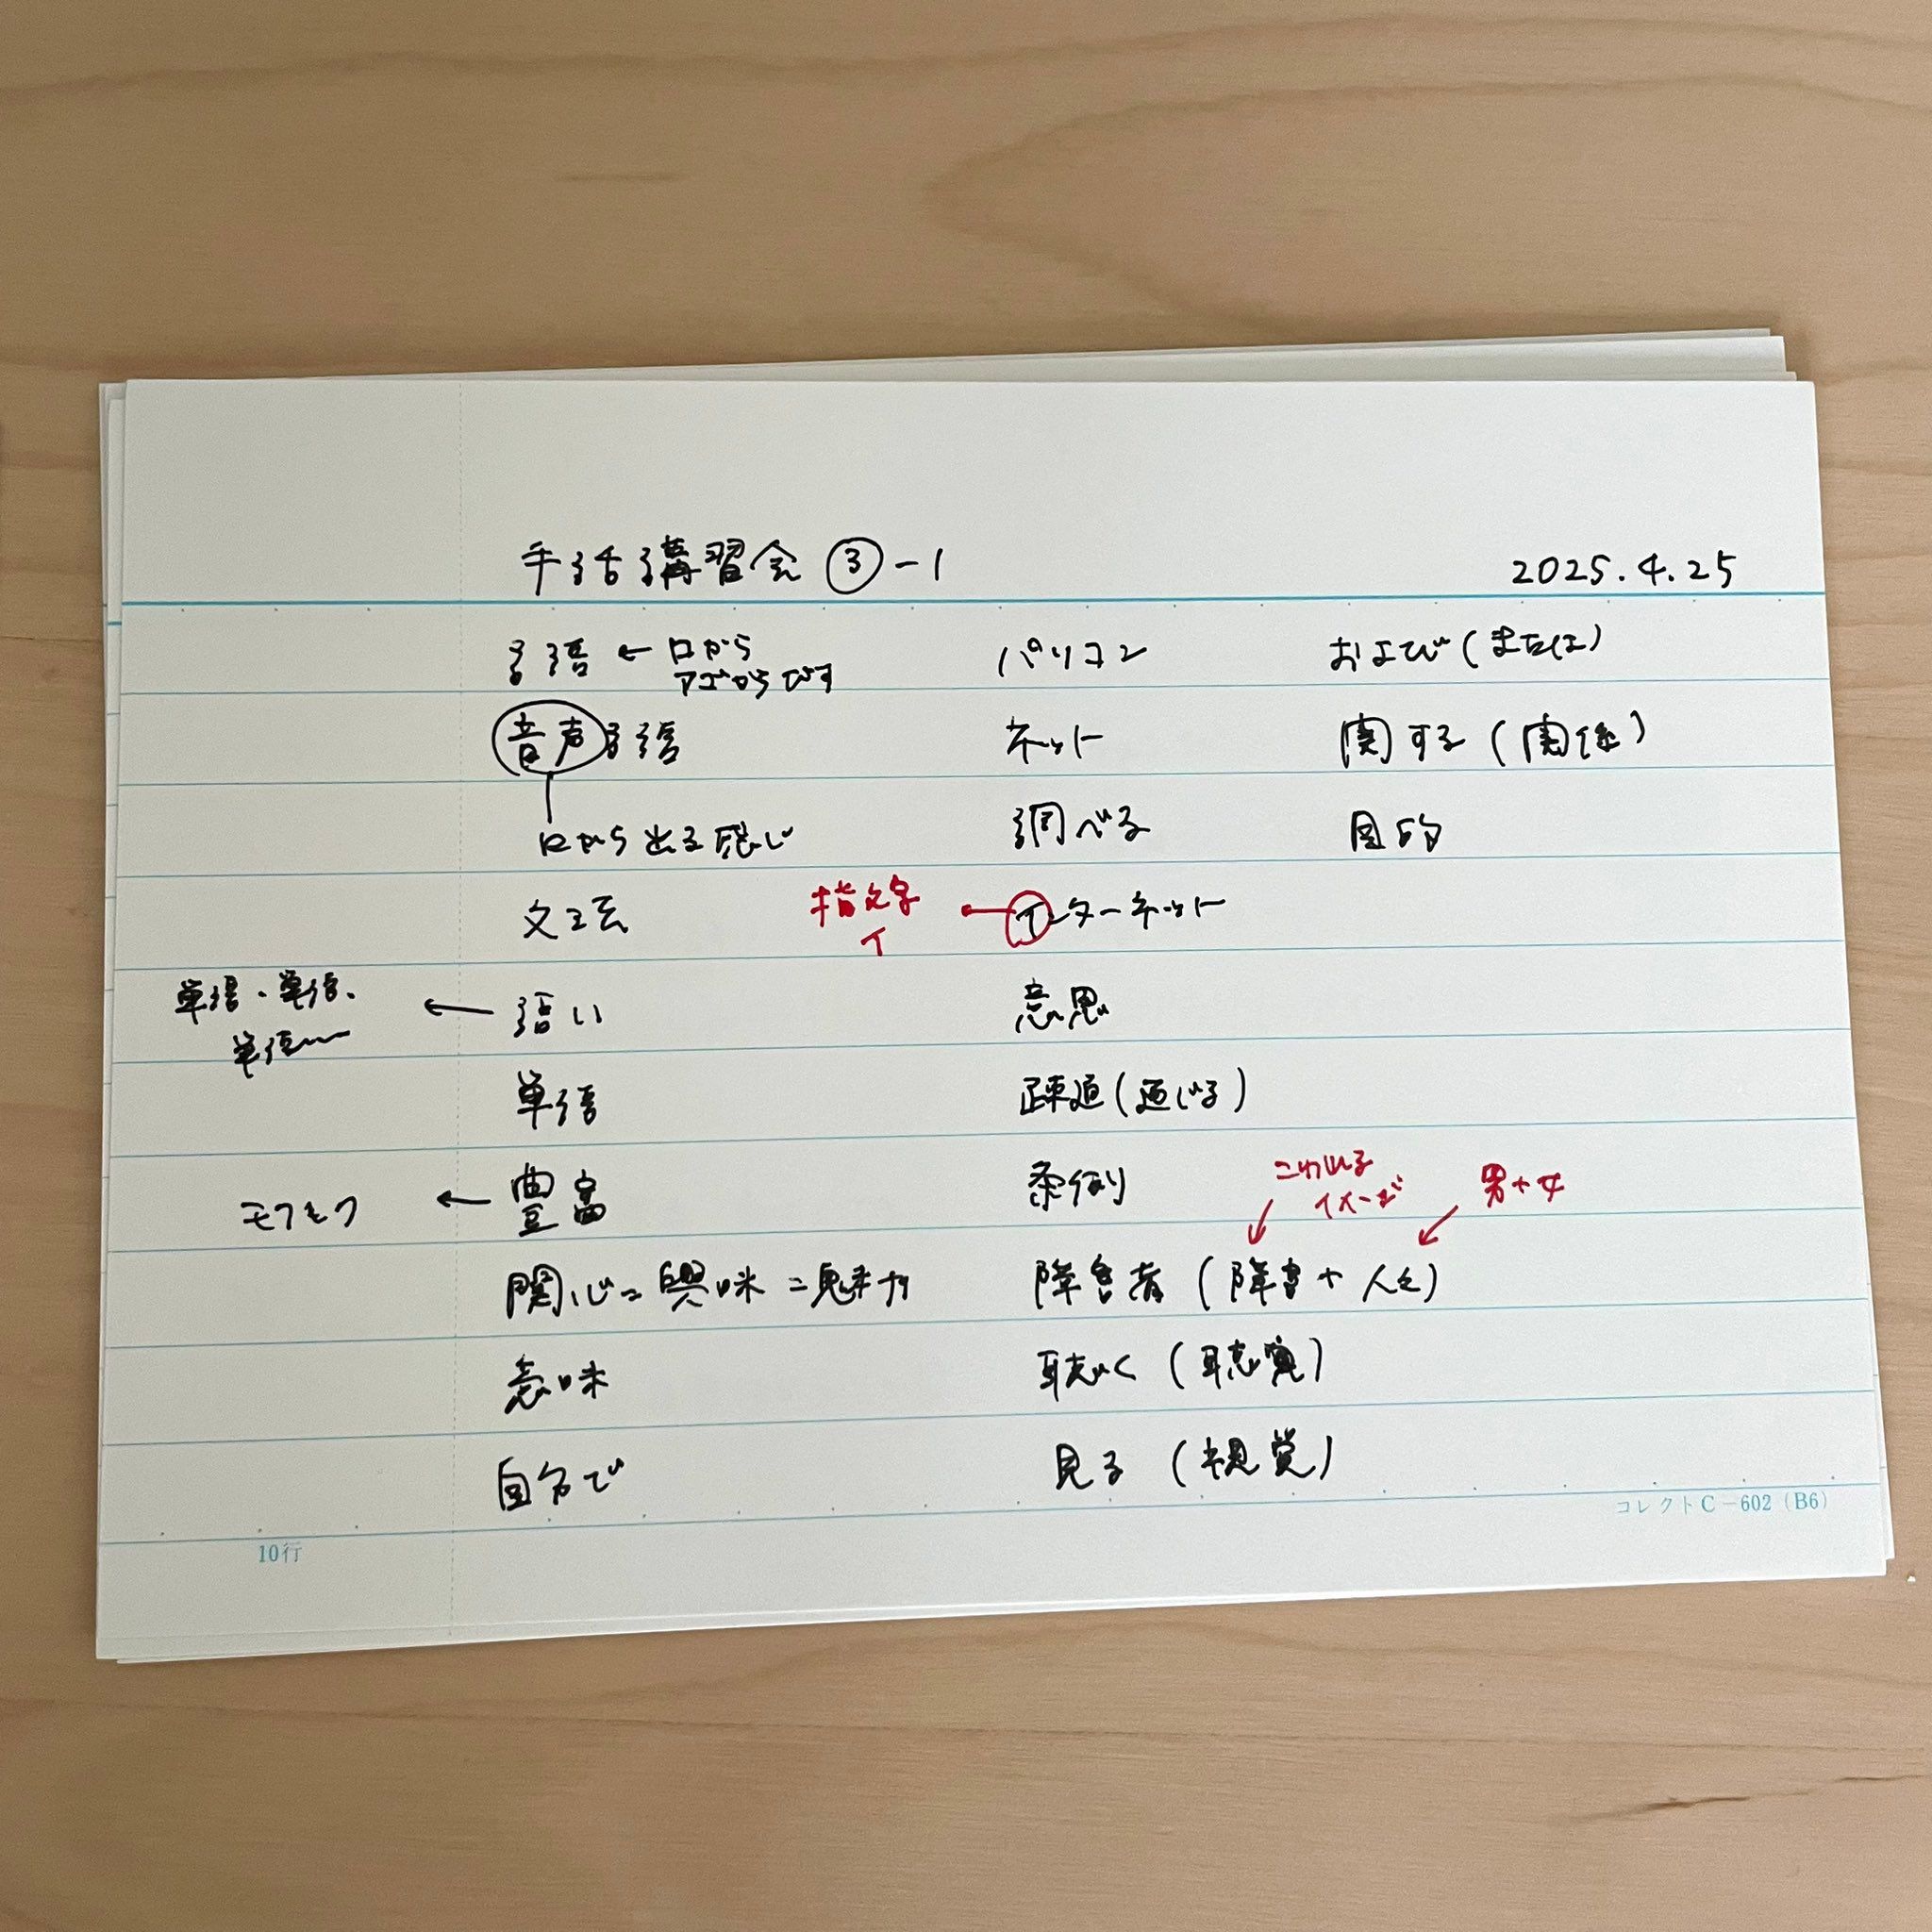 手話講習会 ③-1
2025.4.25
言語 ← 口から
アゴから びす
音声言語
口から出る感じ
文法
単語・単語、
単語〜
← 語い
単語
モクモク ← 豊富
関心=興味=魅力
意味
自分で
パソコン
ネット
調べる
指文字
イ
インターネット
意思
疎通(通じる)
条例
こわれる
イメージ
男+女
障害者(障害+人々)
聴く(聴覚)
見る(視覚)
および(または)
関する(関係)
目的
10行
コレクト C-602 (B6)